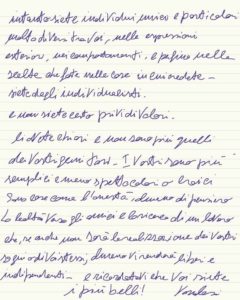 intanto siete individui unici e particolari
molto diversi tra voi, nelle espressioni
esteriori, nei comportamenti e perfino nelle
scelte che fate nelle cose in cui credete -
siete degli individualisti.
e non siete certo privi di valori.
li avete chiari e non sono più quelli
dei vostri genitori - I vostri sono più
semplici e meno spettacolari o eroici
Sono cose come l'onestà, almeno di pensiero
la lealtà verso gli amici e la ricerca di un lavoro
che, se anche non sarà la realizzazione dei vostri
sogni o di voi stessi, almeno vi renderà liberi e
indipendenti - e ricordatevi che voi siete
i più belli!